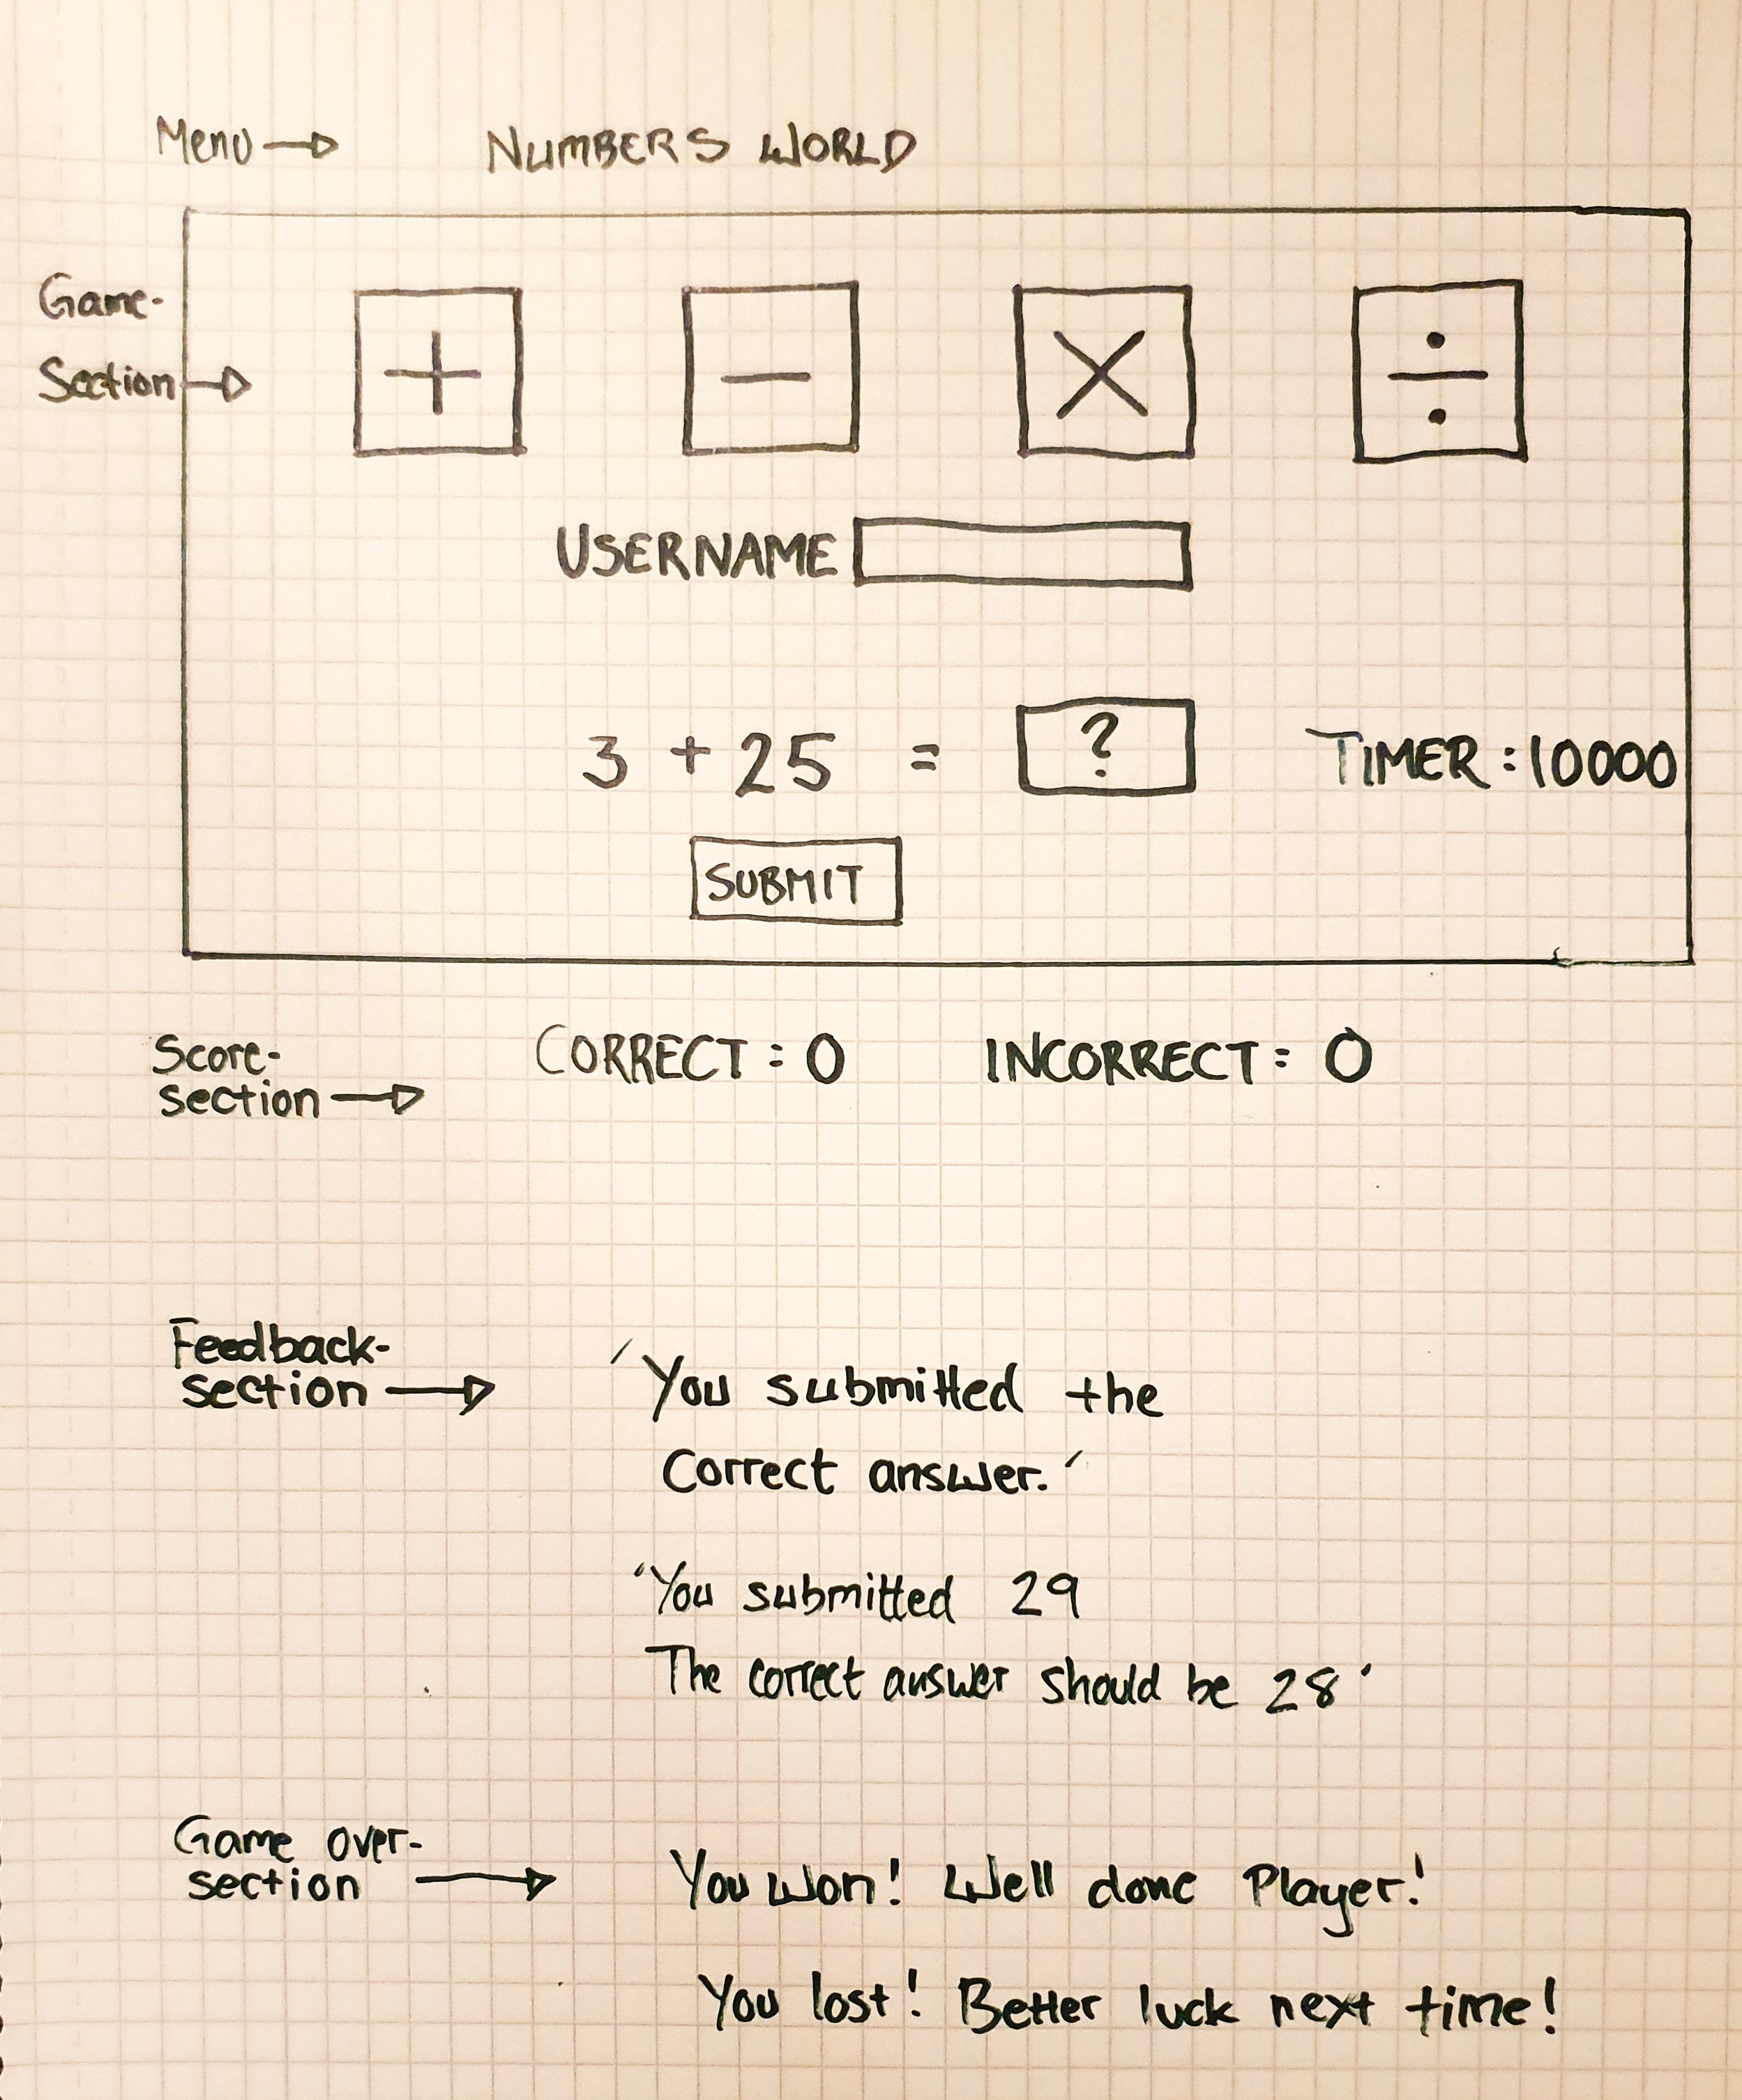 Menu → NUMBERS WORLD
Game-
Section →
+ − × ÷
USERNAME
3 + 25 = ? TIMER : 10000
SUBMIT
Score-
section →
CORRECT : 0 INCORRECT : 0
Feedback-
section →
'You submitted the
Correct answer.'
'You submitted 29
The correct answer should be 28'
Game over-
section →
You won! Well done Player!
You lost! Better luck next time!